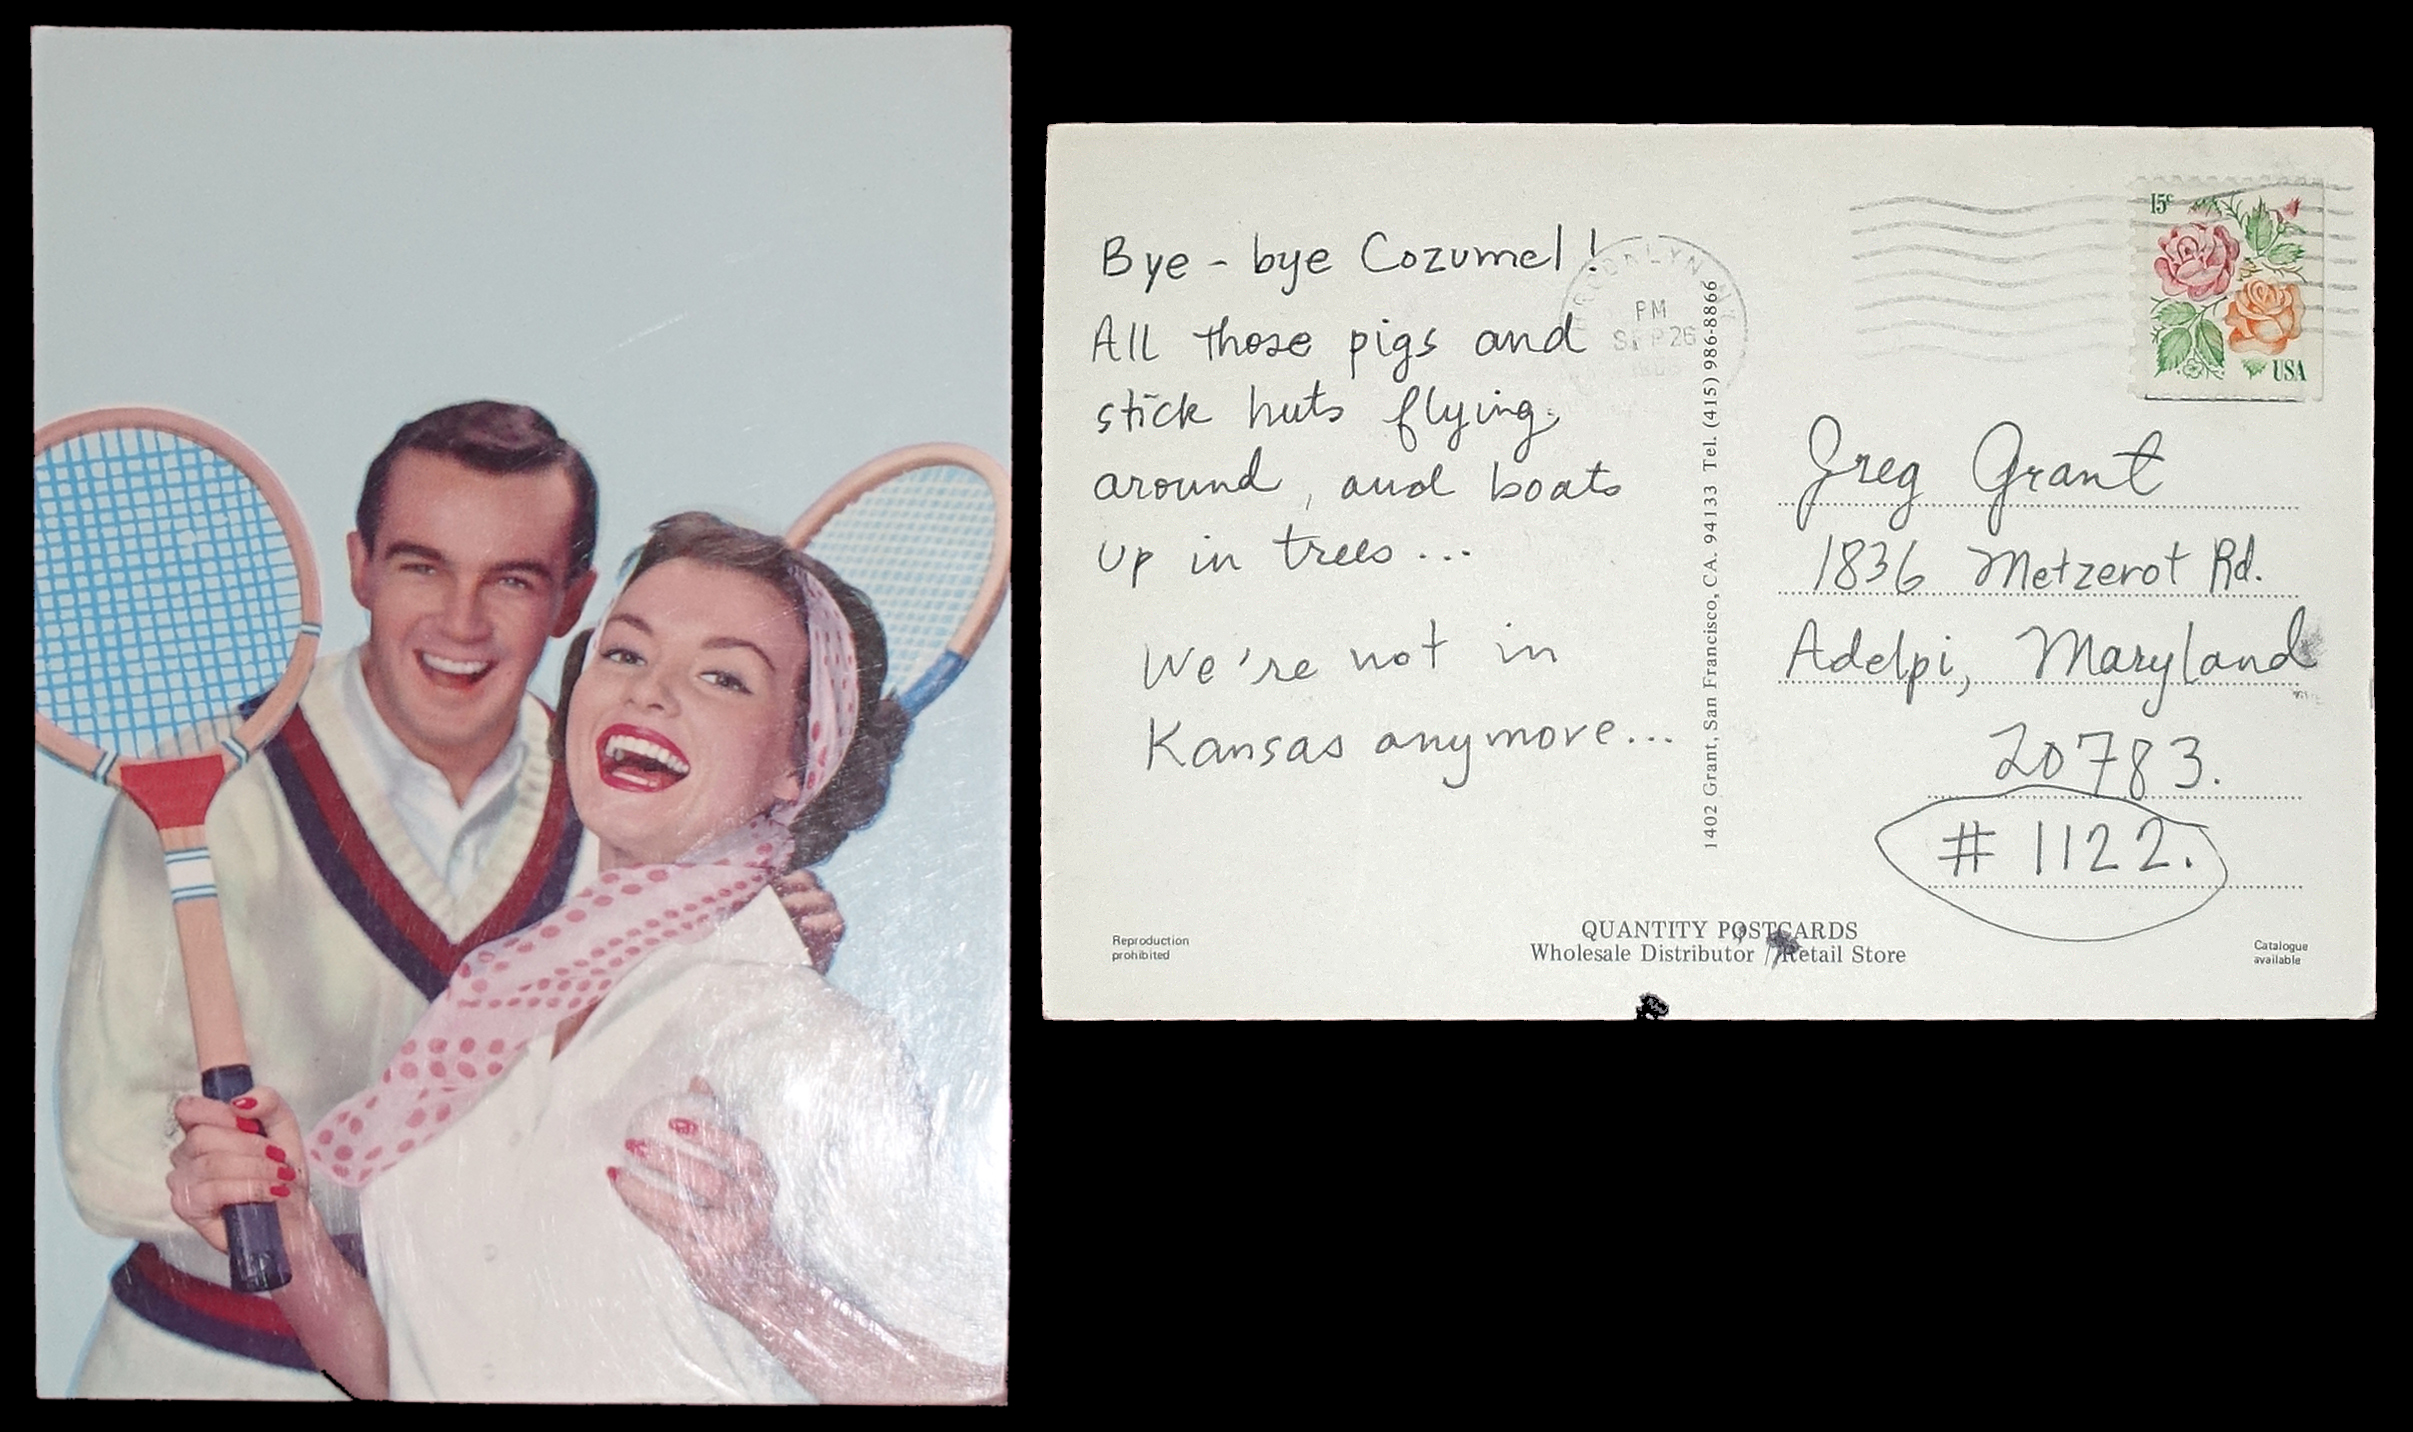 Bye - bye Cozumel!
All those pigs and
stick huts flying
around, and boats
up in trees...
We're not in
Kansas anymore...
PM
SEP 26
1402 Grant, San Francisco, CA. 94133 Tel. (415) 986-8866
15¢
USA
Greg Grant
1836 Metzerot Rd.
Adelpi, Maryland
20783.
# 1122.
QUANTITY POSTCARDS
Wholesale Distributor / Retail Store
Reproduction
prohibited
Catalogue
available